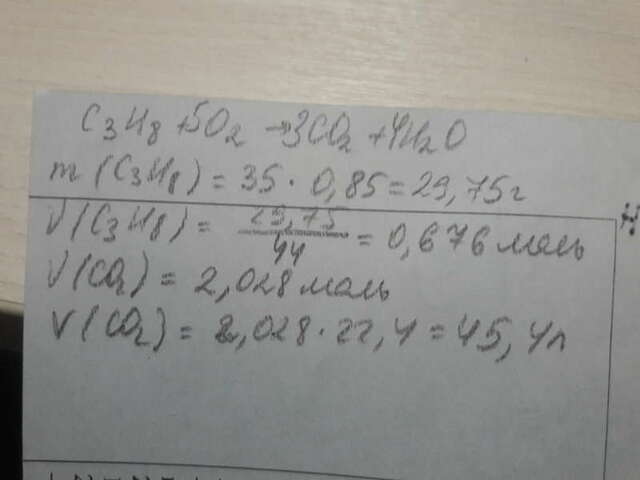 C₃H₈ + 5O₂ → 3CO₂ + 4H₂O
m(C₃H₈) = 35 · 0,85 = 29,75 г
ν(C₃H₈) = 29,75/44 = 0,676 моль
ν(CO₂) = 2,028 моль
V(CO₂) = 2,028 · 22,4 = 45,4 л